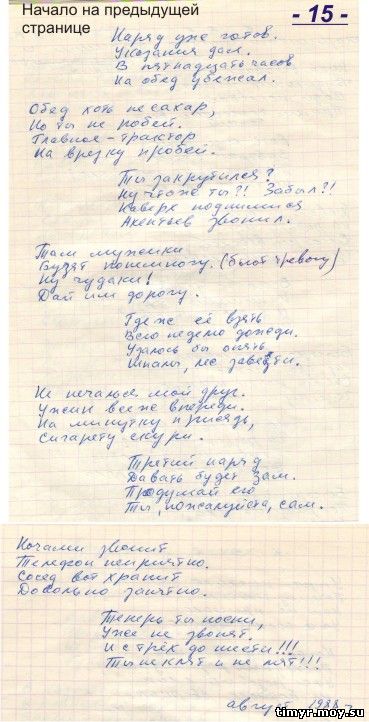 Начало на предыдущей
странице
- 15 -
Наряд уже готов.
Указания дал.
В пятнадцать часов
На обед убежал.
Обед хоть не сахар,
Но ты не робей.
Главное - трактор
На врезку пробей.
Ты закрутился?
Ну что же ты?! Забыл?!
Наверх поднимися
Акентьев звонил.
Там мужики
Бузят понемногу. (бьют тревогу)
Ну чудаки!
Дай им дорогу.
Где ж её взять
Всю неделю дожди.
Удалось бы опять
Шпалы, лес завезти.
Не печалься мой друг.
Ужин все же впереди.
На минутку присядь,
Сигарету скури.
Третий наряд
Давать будет Зам.
Продумай его
Ты, пожалуйста, сам.
Ночами звонит
Телефон неприятно.
Сосед вот храпит
Довольно занятно.
Теперь ты поспи,
Уже не звонят.
И с трёх до шести!!!
Ты не клят и не мят!!!
август
timyr-moy.su